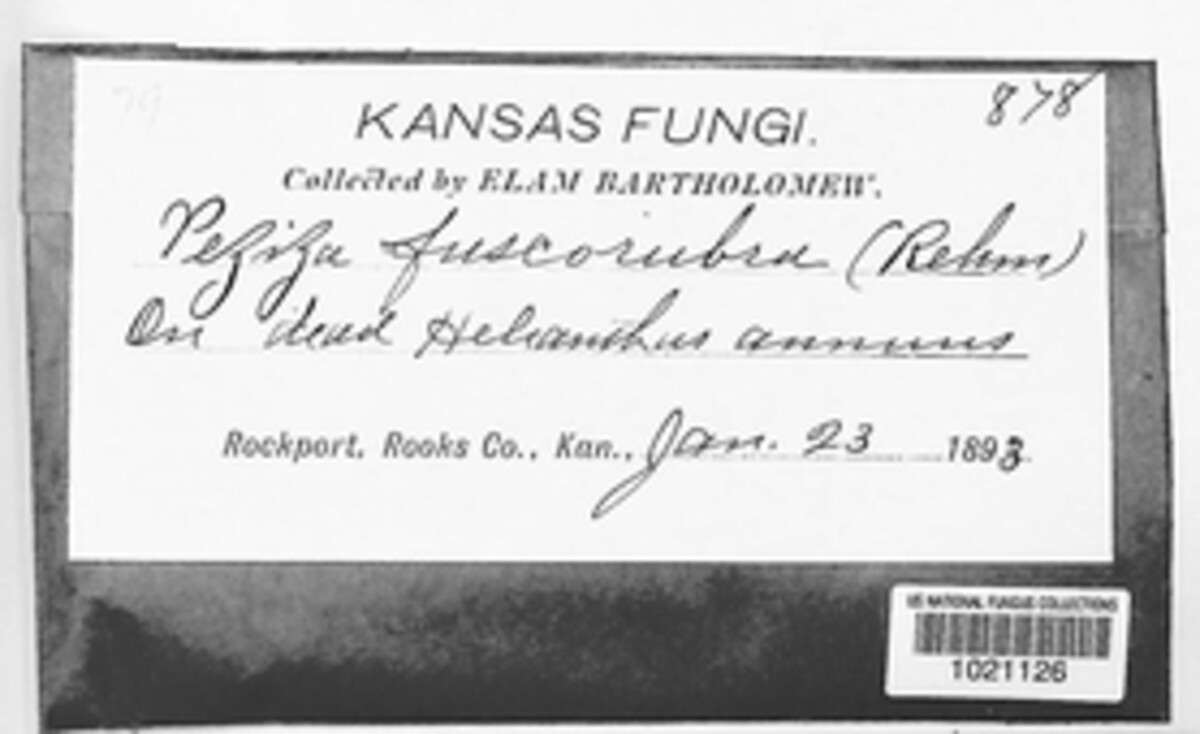 79
878
KANSAS FUNGI.
Collected by ELAM BARTHOLOMEW.
Peziza fuscorubra (Rehm)
On dead Helianthus annuus
Rockport, Rooks Co., Kan., Jan. 23 1893.
US NATIONAL FUNGUS COLLECTIONS
1021126